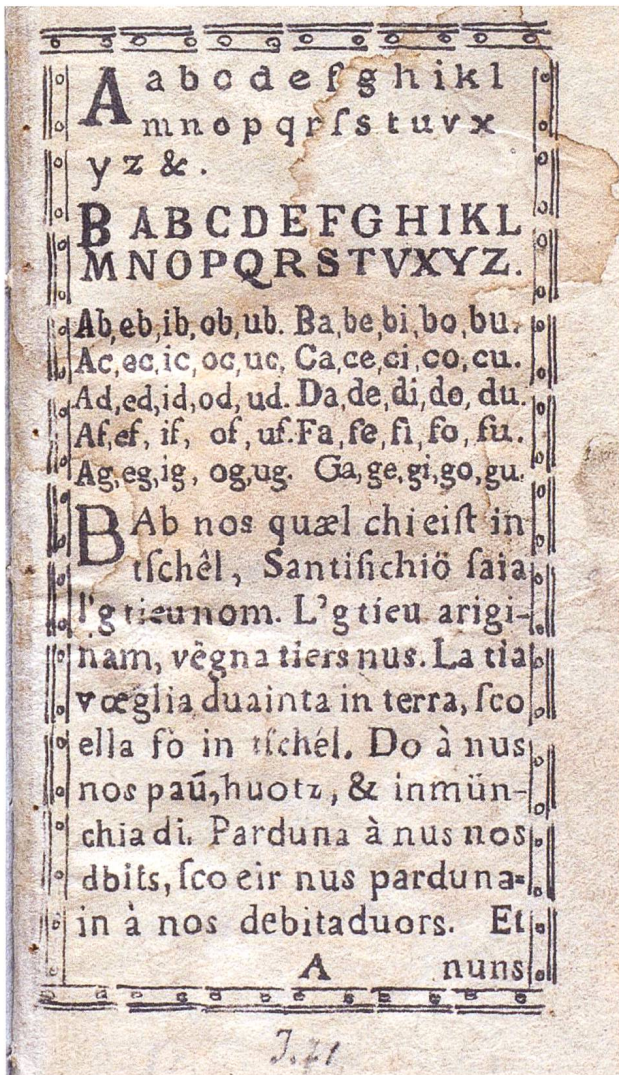 A a b c d e f g h i k l
m n o p q r ſ s t u v x
y z & .
B A B C D E F G H I K L
M N O P Q R S T V X Y Z.
Ab, eb, ib, ob, ub. Ba, be, bi, bo, bu.
Ac, ec, ic, oc, uc, Ca, ce, ci, co, cu.
Ad, ed, id, od, ud. Da, de, di, do, du.
Af, ef, if, of, uf. Fa, fe, fi, fo, fu.
Ag, eg, ig, og, ug. Ga, ge, gi, go, gu.
BAb nos quæl chi eiſt in
tſchêl, Santifichiö ſaia
l'g tieu nom. L'g tieu arigi-
nam, vêgna tiers nus. La tia
vœglia duainta in terra, ſco
ella fò in tſchêl. Do à nus
nos paũ, huotz, & inmün-
chia di. Parduna à nus nos
dbits, ſco eir nus parduna-
in à nos debitaduors. Et
A nuns